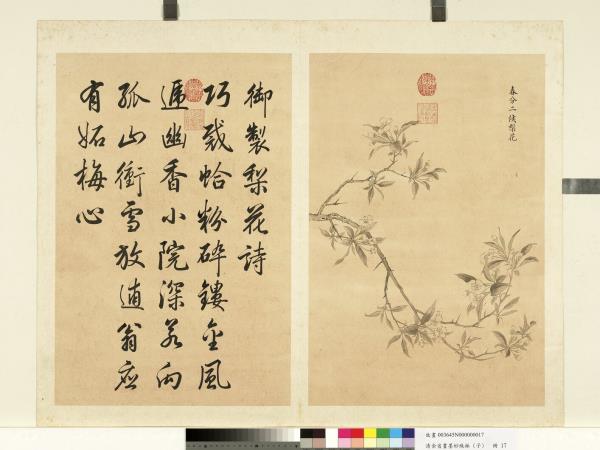 春分二候梨花
御製梨花詩
巧裁蛤粉碎鏤金風
遞幽香小院深若向
孤山衝雪放逋翁應
有妬梅心
故畫 003645N000000017
清余省畫墨妙珠林（子） 冊 17